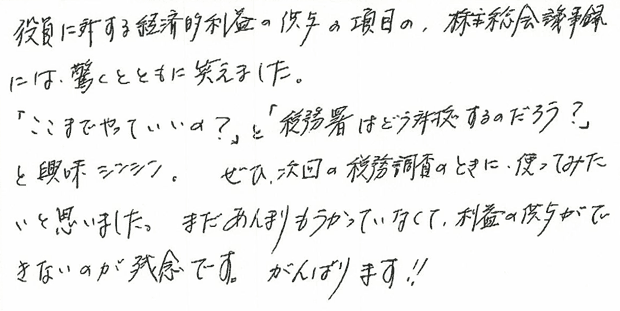 役員に対する経済的利益の供与の項目の、株主総会議事録
には、驚くとともに笑えました。
「ここまでやっていいの?」と「税務署はどう対抗するのだろう?」
と興味シンシン。 ぜひ、次回の税務調査のときに、使ってみた
いと思いました。 まだあんまりもうかっていなくて、利益の供与がで
きないのが残念です。 がんばります!!